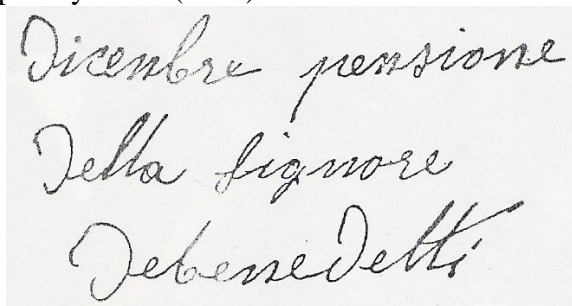 Dicembre pensione
Della signore
DebeneDetti